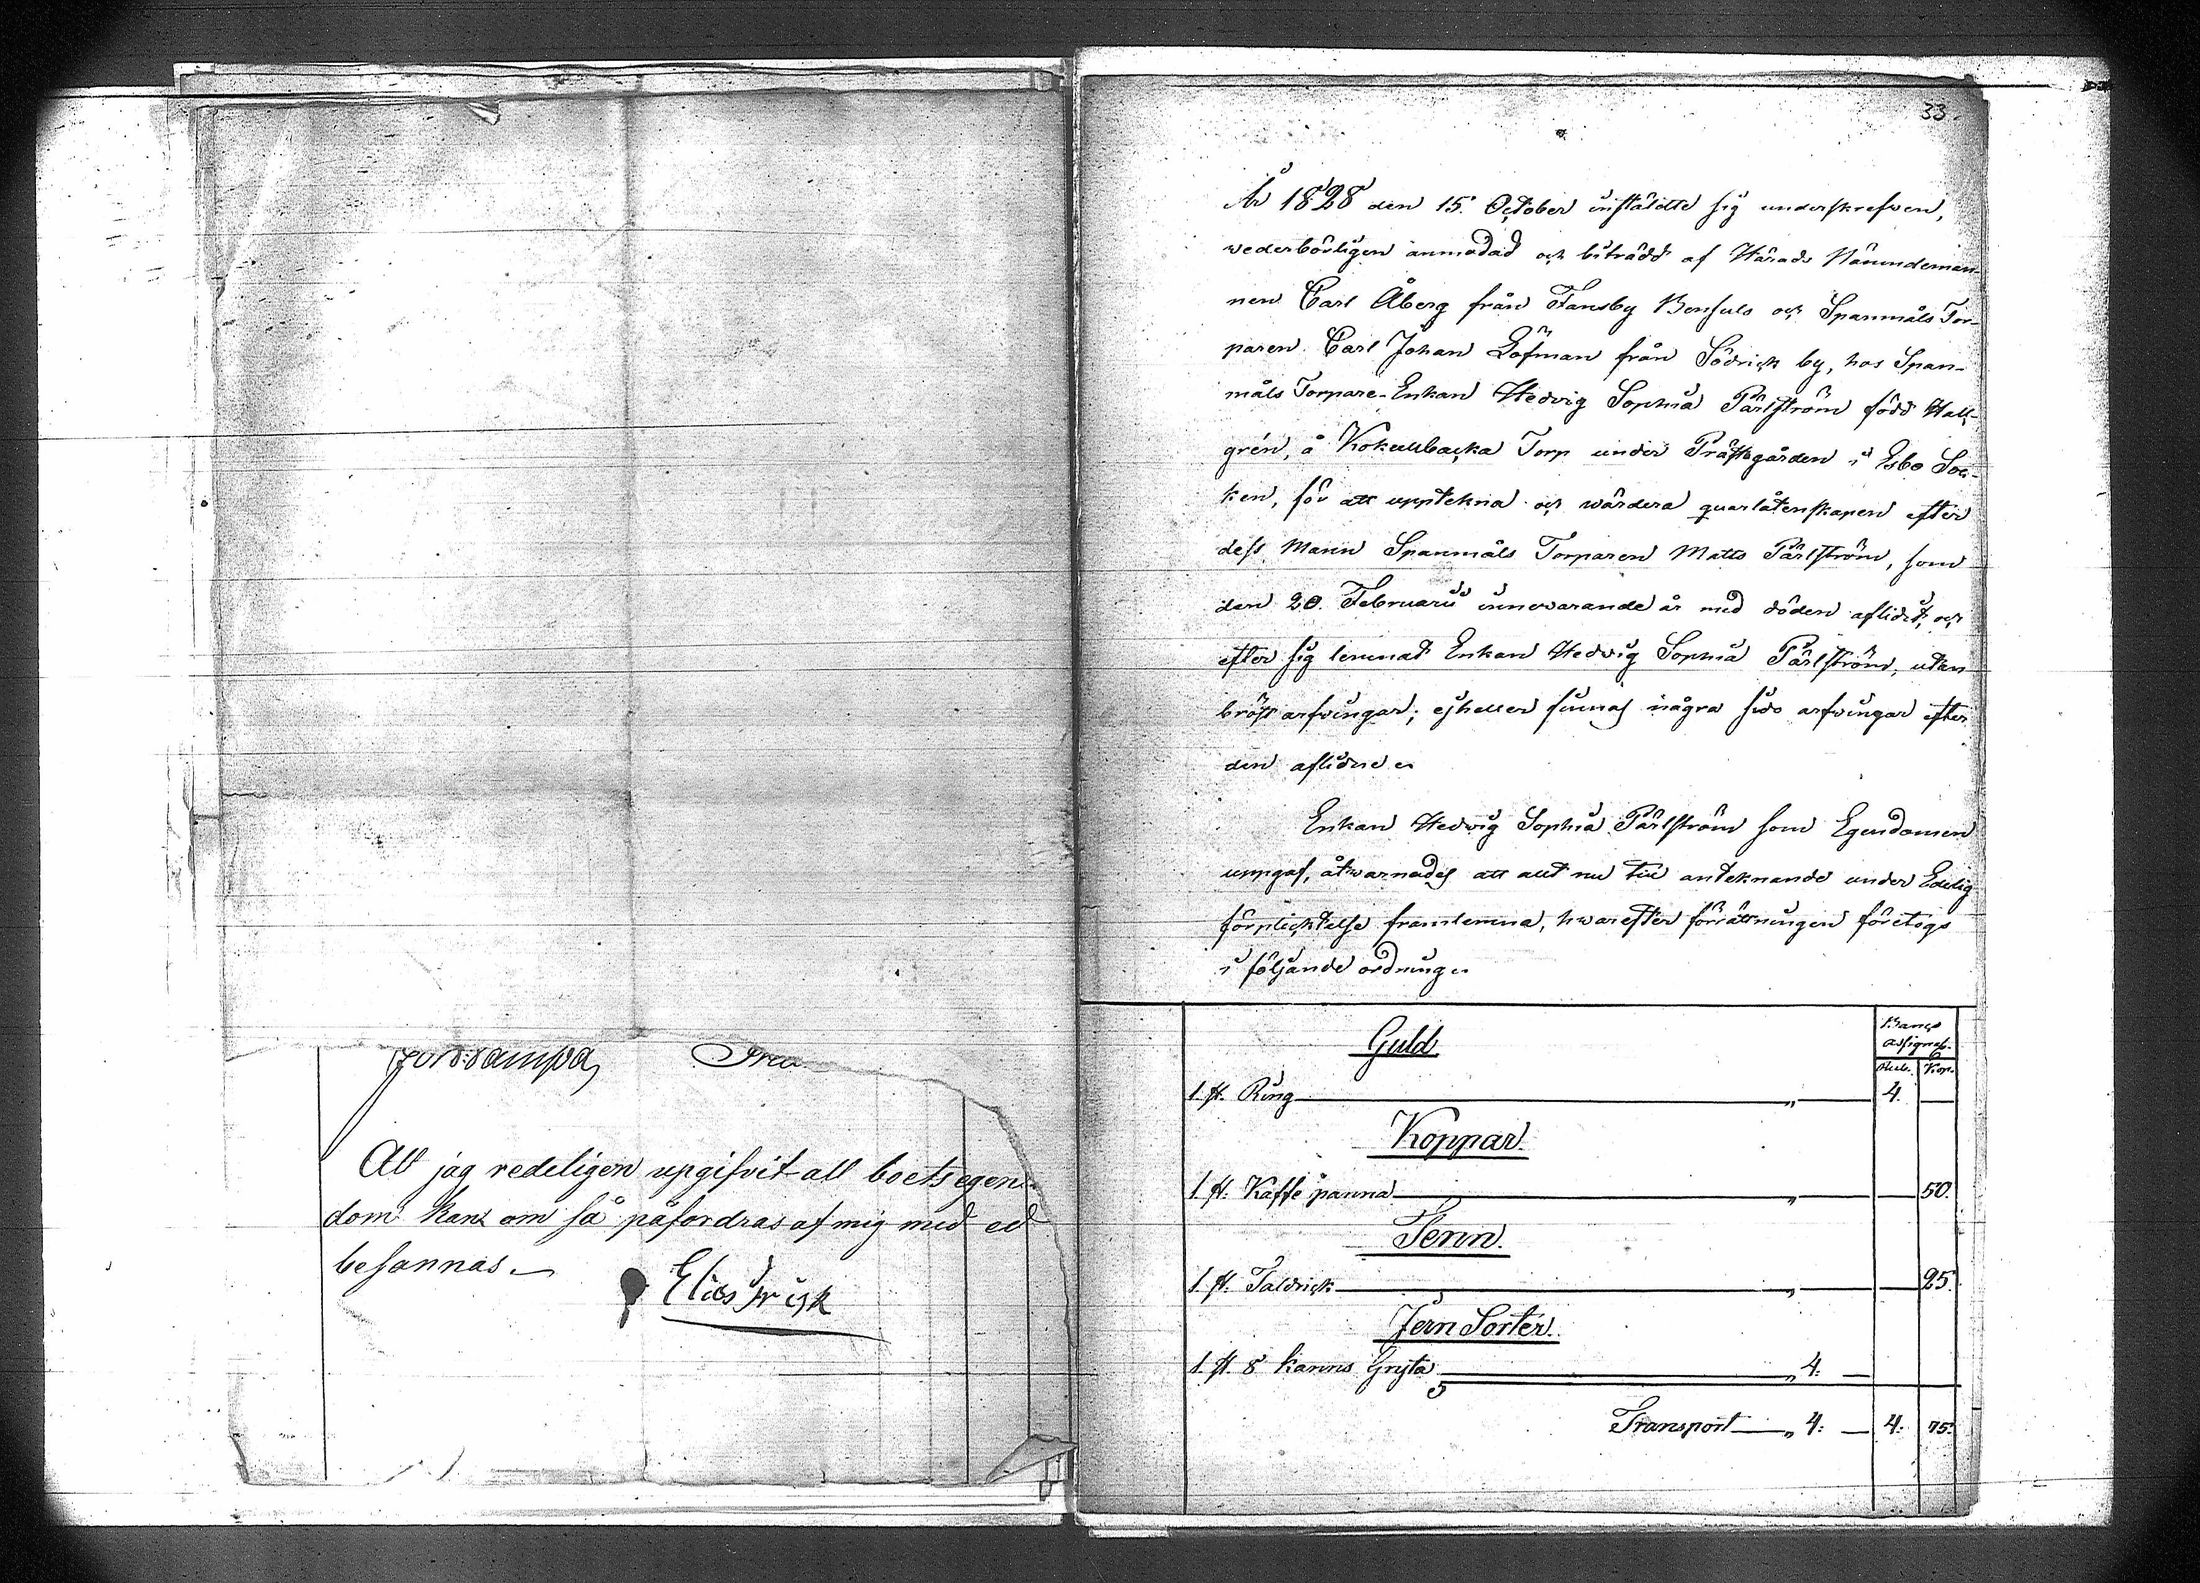 Jordsämpa
Att jag redeligen upgifvit all boets egen-
dom kan om så påfordras af mig med ed
besannas.
Elias Frisk
33.
År 1828 den 15. October inställdte sig underskrefwen,
wederbörligen anmodad och biträdd af Härads Nämndeman-
nen Carl Åberg från Fansby Bensuls och Spanmåls Tor-
paren Carl Johan Löfman från Södrick by, hos Span-
måls Torpare-Enkan Hedvig Sophia Pärlström född Hall-
grén, å Kokullbacka Torp under Prästegården i Esbo Soc-
ken, för att upptekna och wärdera quarlåtenskapen efter
dess Mann Spanmåls Torparen Matts Pärlström, som
den 20. Februarii innewarande år med döden aflidit, och
efter sig lemnat Enkan Hedvig Sophia Pärlström, utan
bröst arfwingar; ejheller finnas några sido arfwingar efter
den aflidne.
Enkan Hedvig Sophia Pärlström som Egendomen
uppgaf, åtwarnades att allt nu till anteknande under Edelig
förplicktelse framlemna, hwarefter förrättningen företogs
i följande ordning.
Banco
assignat.
Guld
Rub. Kop.
1. st. Ring " 4. —
Koppar.
1. st. Kaffe panna " — 50.
Tenn.
1. st. Taldrick " — 25.
Jern Sorter.
1. st. 8 kanns Gryta " 4: —
Transport " 4: — 4: 75.